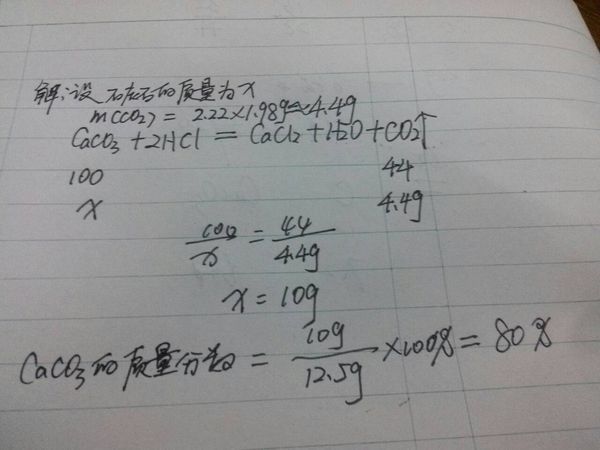 解:设石灰石的质量为x
m(CO₂)= 2.22×1.98g≈4.4g
CaCO₃+2HCl=CaCl₂+H₂O+CO₂↑
100 44
x 4.4g
100/x = 44/4.4g
x=10g
CaCO₃的质量分数= 10g/12.5g ×100%=80%